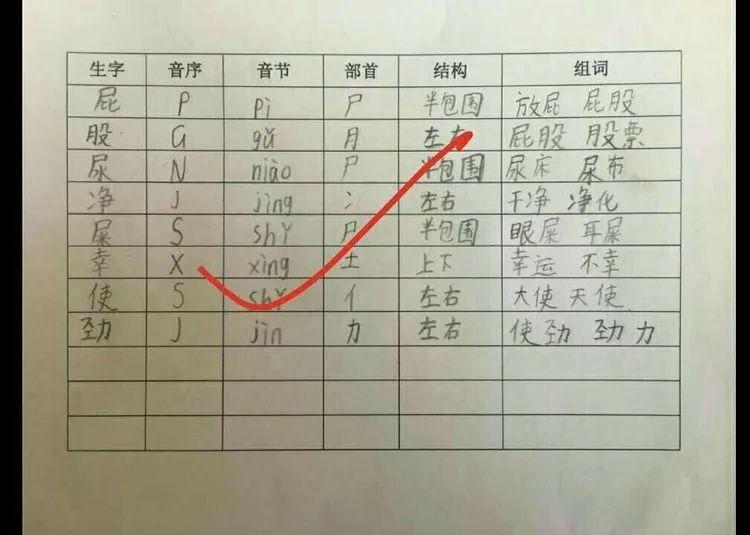 生字 音序 音节 部首 结构 组词
屁 P pì 尸 半包围 放屁 屁股
股 G gǔ 月 左右 屁股 股票
尿 N niào 尸 半包围 尿床 尿布
净 J jìng 冫 左右 干净 净化
屎 S shǐ 尸 半包围 眼屎 耳屎
幸 X xìng 土 上下 幸运 不幸
使 S shǐ 亻 左右 大使 天使
劲 J jìn 力 左右 使劲 劲力